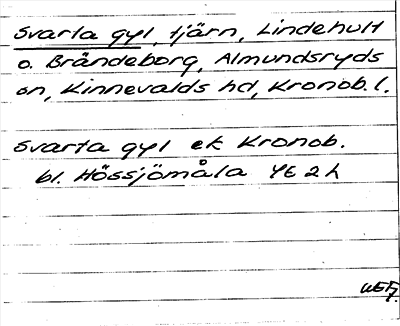 Svarta gyl, tjärn, Lindehult
o. Brändeborg, Almundsryds
sn, Kinnevalds hd, Kronob. l.
Svarta gyl ek Kronob.
bl. Hössjömåla YE 2 h